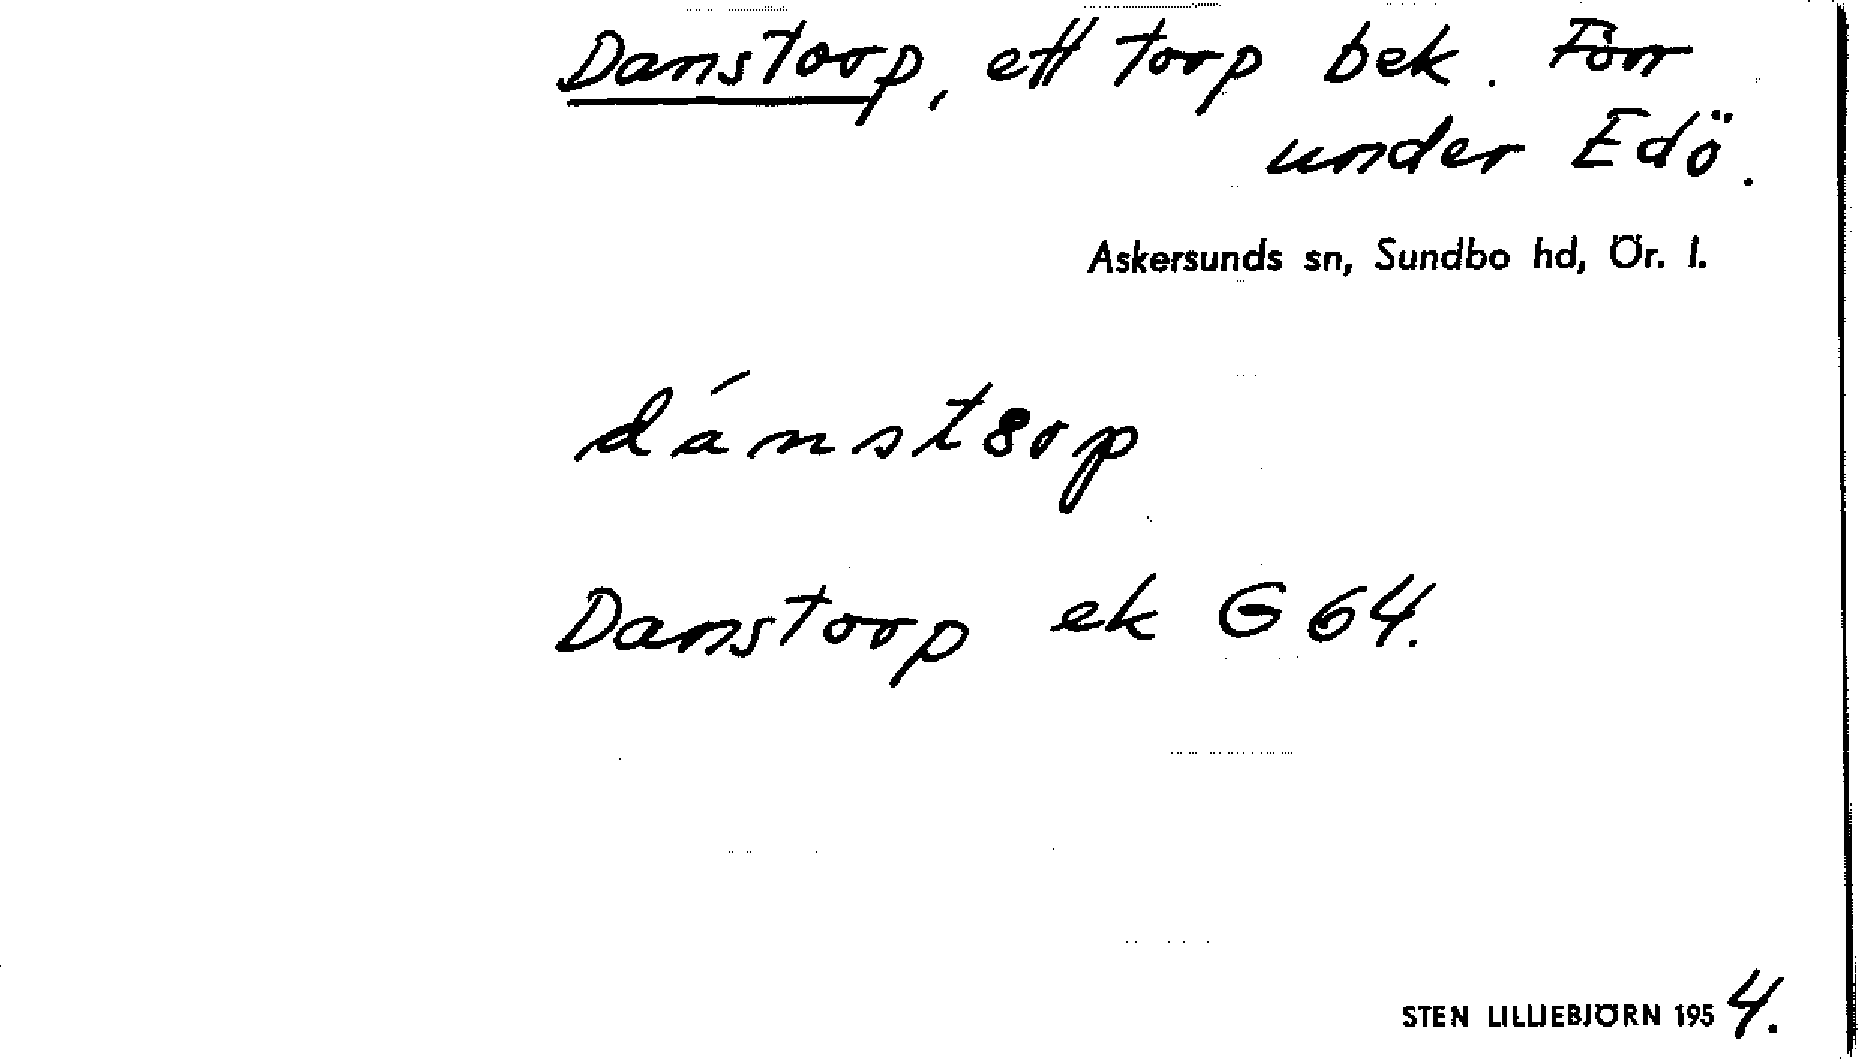 Danstorp, ett torp bek. Förr
under Edö.
Askersunds sn, Sundbo hd, Ör. l.
dánst8rp
Danstorp ek G 64.
STEN LILLIEBJÖRN 1954.